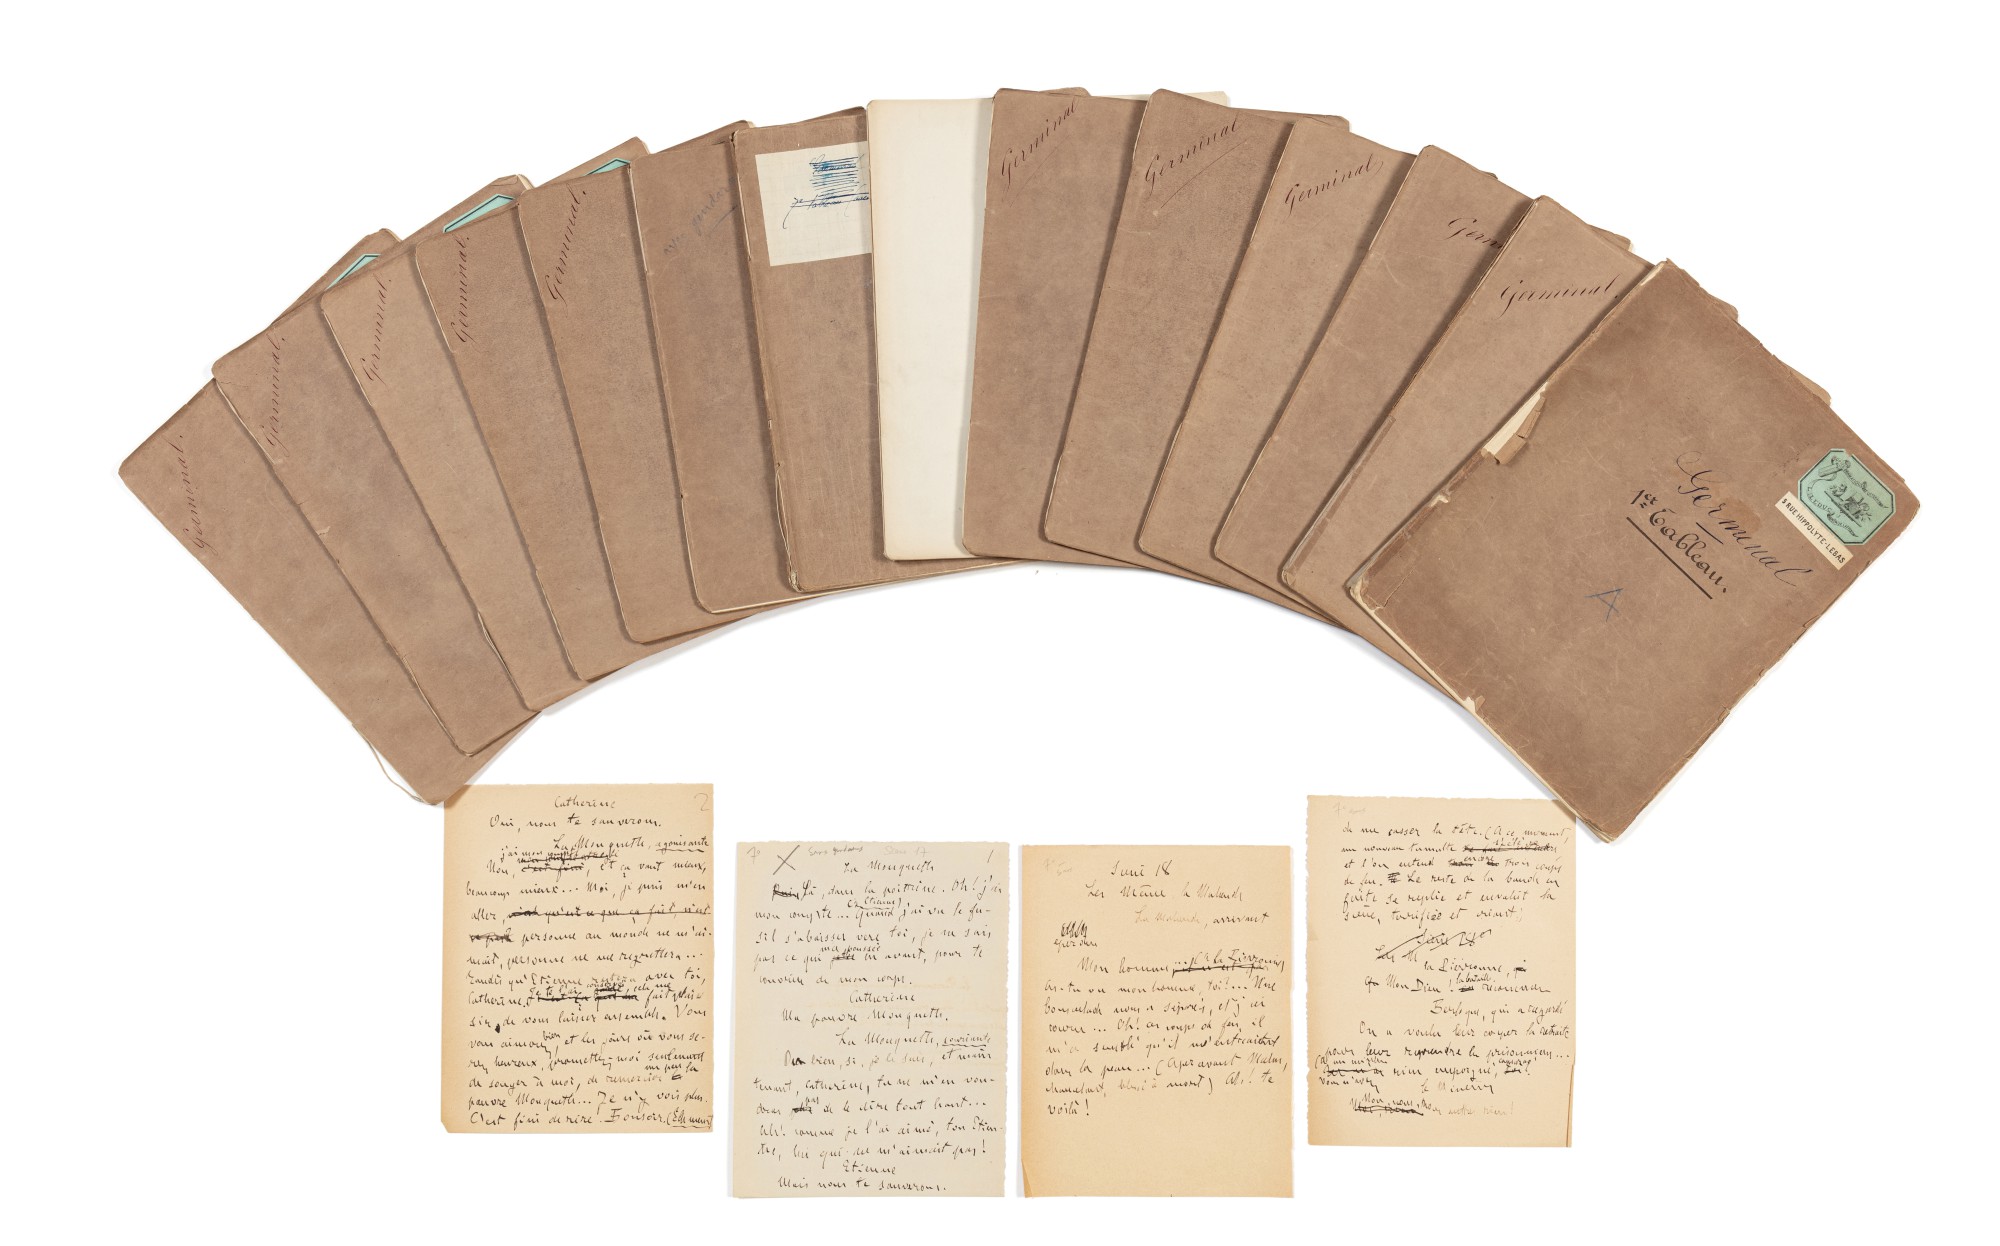 Germinal.
Germinal.
Germinal.
Germinal.
Germinal.
Germinal
Germinal
Germinal
Germinal.
Germinal
1er Tableau.
A
5 RUE HIPPOLYTE-LEBAS
2
Catherine
Oui, nous te sauverons.
La Mouquette, agonisante
j'ai mon
Non, c'est fini, et ça vaut mieux,
beaucoup mieux... Moi, je puis m'en
aller, personne au monde ne m'ai-
mait, personne ne me regrettera...
Tandis qu'Etienne restera avec toi,
Catherine, cela me fait plai-
sir, de vous laisser ensemble. Vous
vous aimerez bien, et les jours où vous se-
rez heureux, promettez-moi seulement
de songer à moi, de remercier un peu la
pauvre Mouquette... Je n'y vois plus.
C'est fini de rire! Bonsoir. (Elle meurt)
1
La Mouquette
Là, dans la poitrine. Oh! j'ai
mon compte... (à Etienne) Quand j'ai vu le fu-
sil s'abaisser vers toi, je ne sais
pas ce qui m'a poussée en avant, pour te
couvrir de mon corps.
Catherine
Ma pauvre Mouquette.
La Mouquette, souriant
bien, si, je le sais, et main-
tenant, Catherine, tu ne m'en vou-
dras pas de le dire tout haut...
Ah! comme je l'ai aimé, ton Etien-
ne, lui qui ne m'aimait pas!
Etienne
Mais nous te sauverons.
Scène 18
Les Même, la Maheude
La Maheude, arrivant
éperdue
Mon homme... (à la Pierronne)
As-tu vu mon homme, toi?... Une
bousculade nous a séparés, et j'ai
couru... Oh! ces coups de feu, il
m'a semblé qu'il m'entraient
dans la peau... (Apercevant Maheu,
chancelant, blessé à mort) Ah! te
voilà!
de me casser la tête. (A ce moment,
un nouveau tumulte
et l'on entend encore trois coups
de feu. Le reste de la bande en
fuite se replie et envahit la
scène, terrifiée et criant;
la Pierronne,
Mon Dieu! la bataille recommence
On a voulu leur couper la retraite
pour leur reprendre les prisonniers...